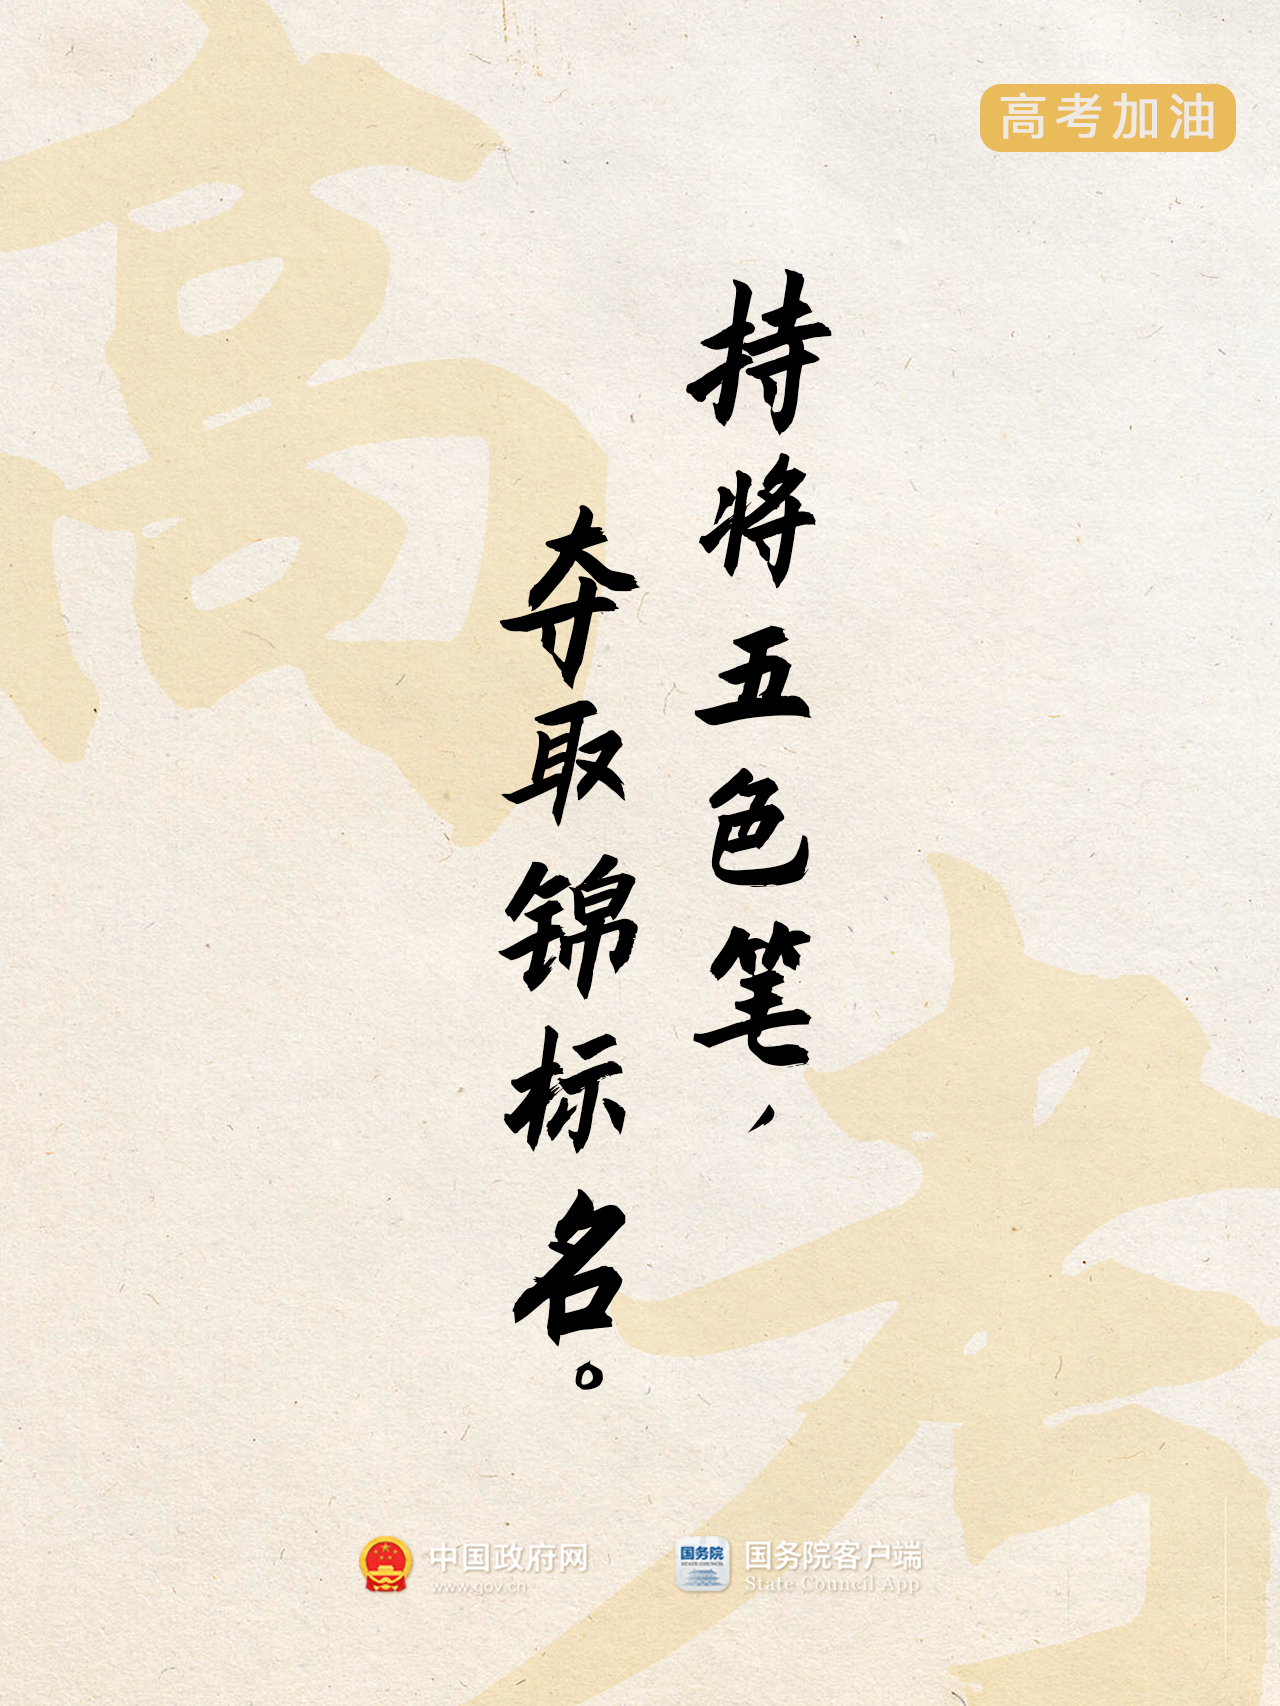 高考
高考加油
持将五色笔，
夺取锦标名。
中国政府网
www.gov.cn
国务院
STATE COUNCIL
国务院客户端
State Council App